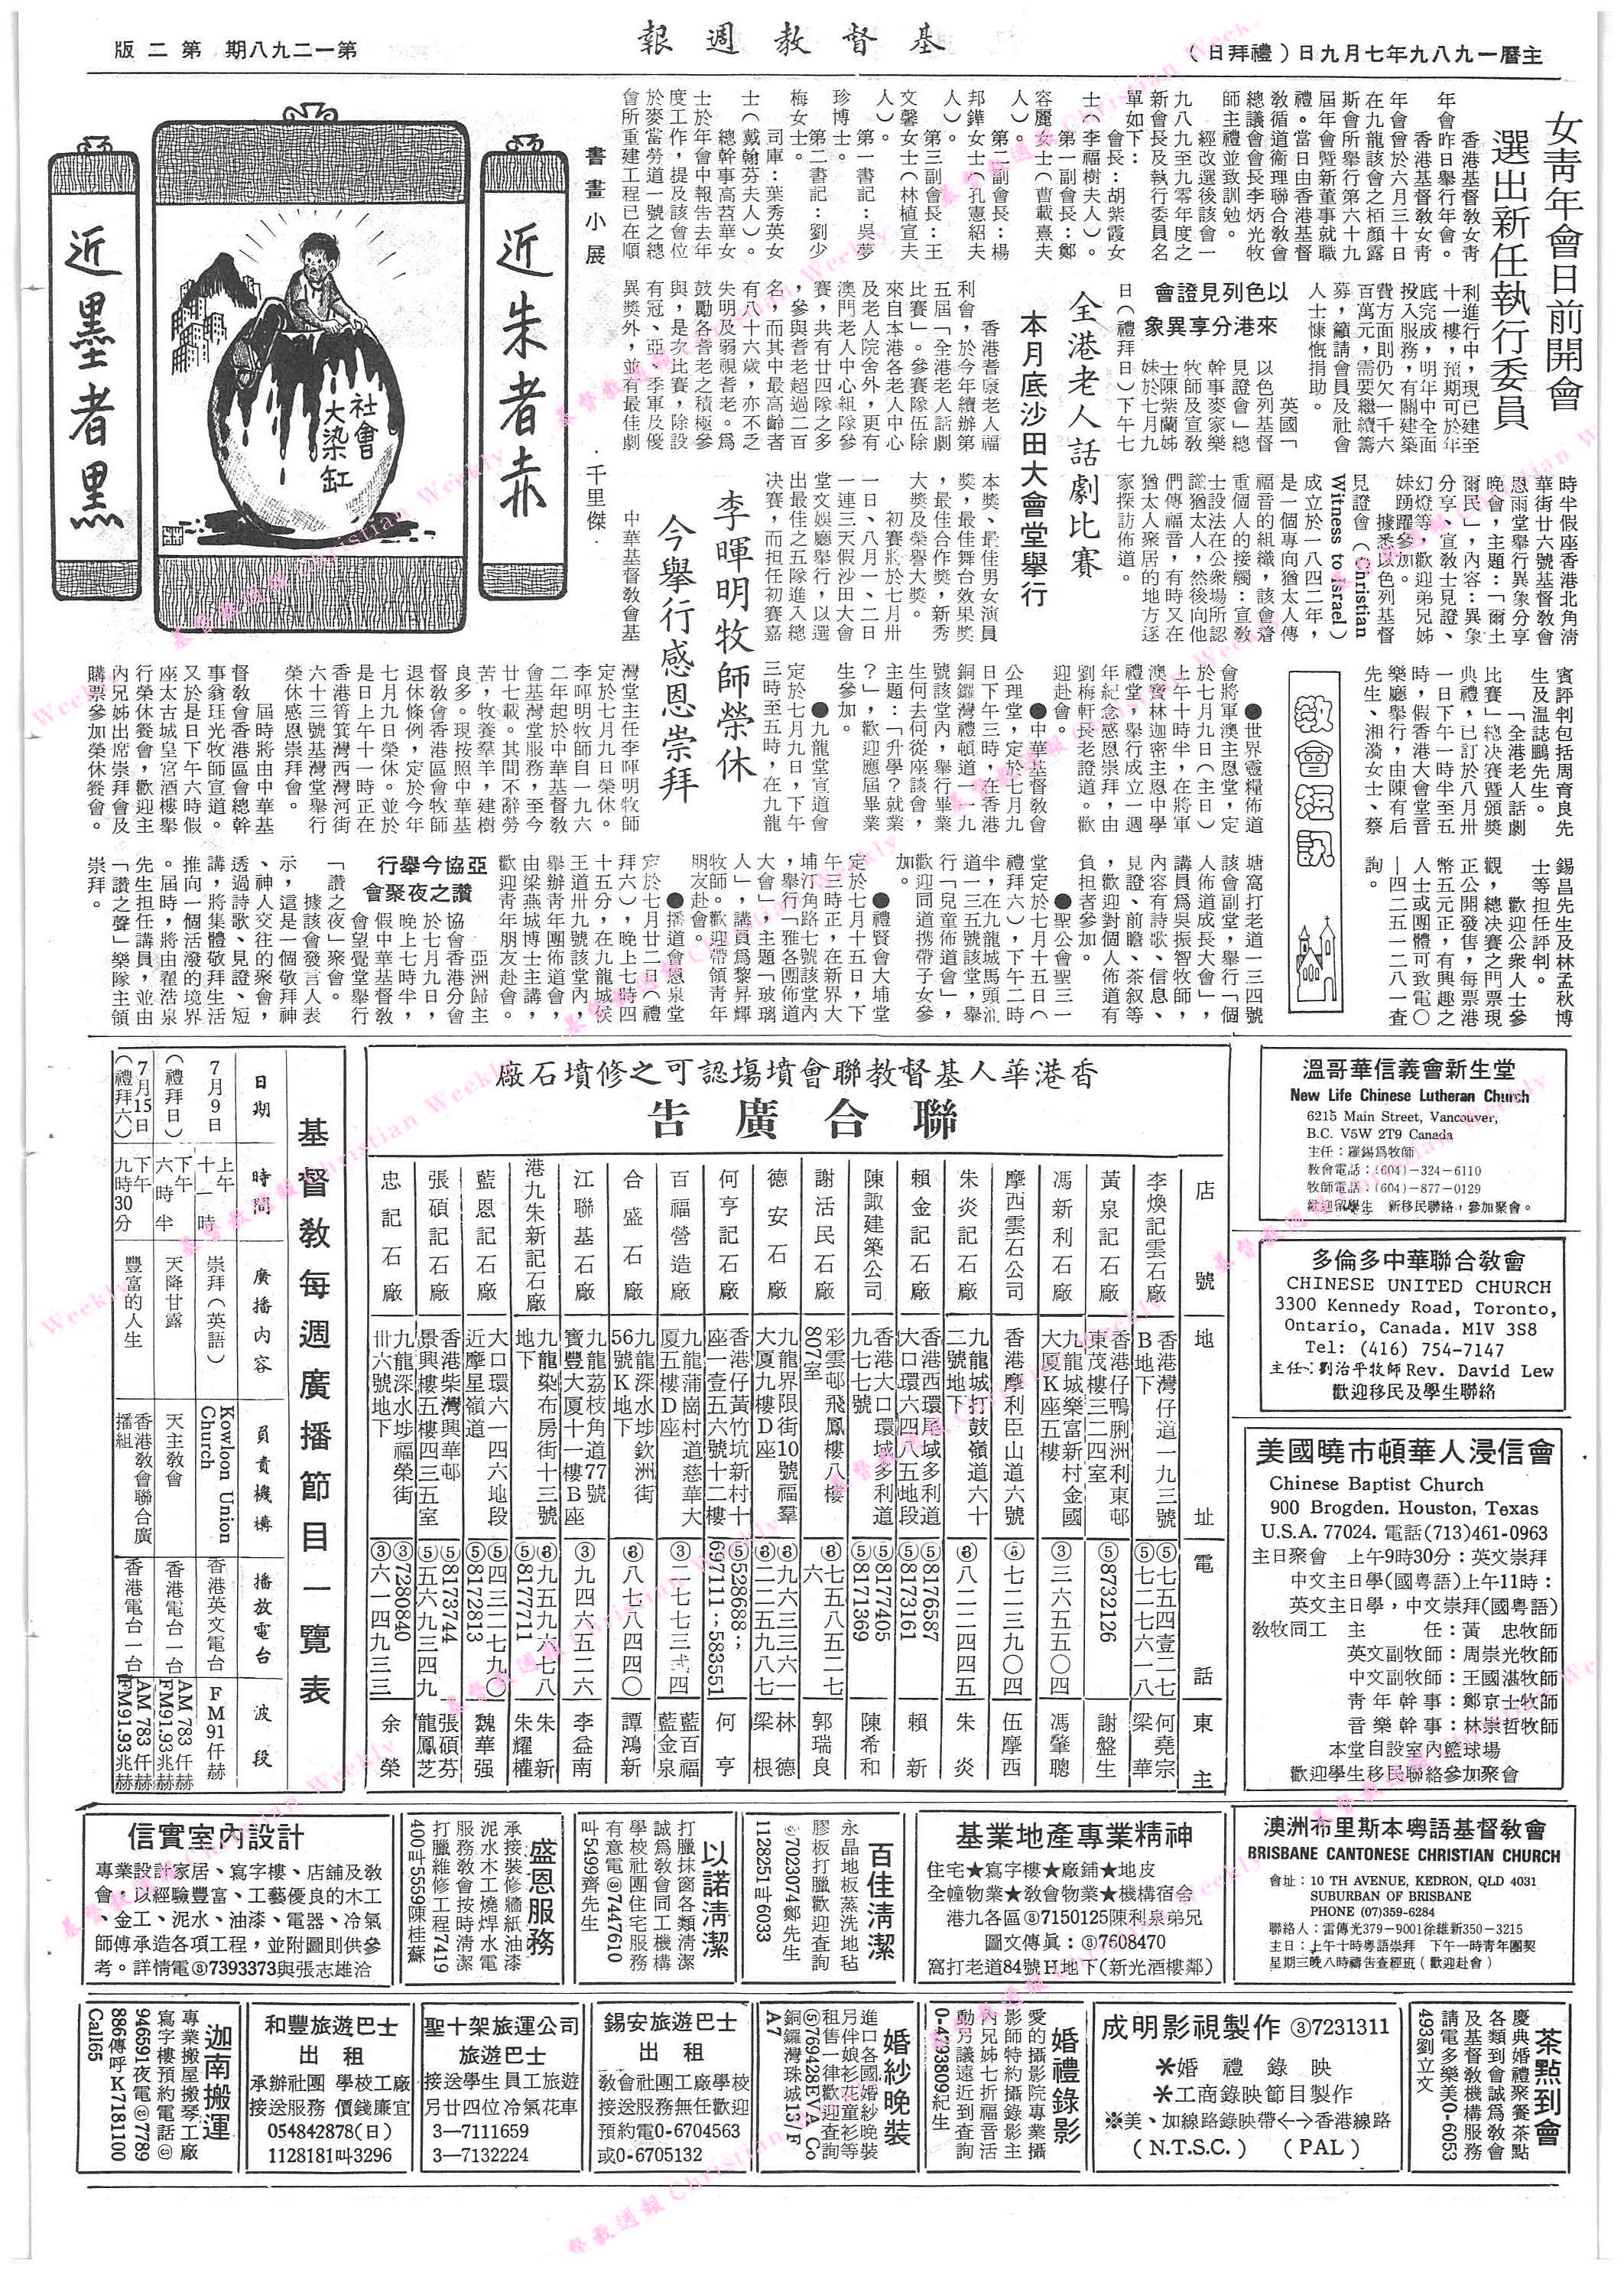 主曆一九八九年七月九日（禮拜日）
基督教週報
第一二九八期　第二版
女靑年會日前開會
選出新任執行委員
香港基督敎女靑
年會昨日舉行年會。
香港基督敎女靑
年會曾於六月三十日
在九龍該會之栢顏露
斯會所舉行第六十九
屆年會暨新董事就職
禮。當日由香港基督
敎循道衛理聯合敎會
總議會會長李炳光牧
師主禮並致訓勉。
經改選後該會一
九八九至九零年度之
新會長及執行委員名
單如下：
會長：胡紫霞女
士（李福樹夫人）。
第一副會長：鄭
容麗女士（曹載熹夫
人）。
第二副會長：楊
邦鏵女士（孔憲紹夫
人）。
第三副會長：王
文馨女士（林植宣夫
人）。
第一書記：吳夢
珍博士。
第二書記：劉少
梅女士。
司庫：葉秀英女
士（戴翰芬夫人）。
總幹事高苕華女
士於年會中報告去年
度工作，提及該會位
於麥當勞道一號之總
會所重建工程已在順
利進行中，現已建至
十一樓，預期可於年
底完成，明年中全面
投入服務，有關建築
費方面則仍欠一千六
百萬元，需要繼續籌
募，籲請會員及社會
人士慷慨捐助。
以色列見證會
來港分享異象
英國「
以色列基督
見證會」總
幹事麥家樂
牧師及宣敎
士陳紫蘭姊
妹於七月九
日（禮拜日）下午七
時半假座香港北角淸
華街廿六號基督敎會
恩雨堂舉行異象分享
晚會，主題：「爾土
爾民」，內容：異象
分享、宣敎士見證、
幻燈等，歡迎弟兄姊
妹踴躍參加。
據悉以色列基督
見證會（Christian
Witness to israel）
成立於一八四二年，
是一個專向猶太人傳
福音的組織，該會着
重個人的接觸：宣敎
士設法在公衆場所認
識猶太人，然後向他
們傳福音，有時又在
猶太人聚居的地方逐
家探訪佈道。
全港老人話劇比賽
本月底沙田大會堂舉行
香港耆康老人福
利會，於今年續辦第
五屆「全港老人話劇
比賽」。參賽隊伍除
來自本港各老人中心
及老人院舍外，更有
澳門老人中心組隊參
賽，共有廿四隊之多
，參與耆老超過二百
名，而其中最高齡者
有八十六歲，亦不乏
失明及弱視耆老。爲
鼓勵各耆老之積極參
與，是次比賽，除設
有冠、亞、季軍及優
異獎外，並有最佳劇
本獎、最佳男女演員
獎，最佳舞台效果獎
，最佳合作獎，新秀
大獎及榮譽大獎。
初賽將於七月卅
一日、八月一、二日
一連三天假沙田大會
堂文娛廳舉行，以選
出最佳之五隊進入總
決賽，而担任初賽嘉
賓評判包括周育良先
生及溫誌鵬先生。
「全港老人話劇
比賽」總決賽暨頒獎
典禮，已訂於八月卅
一日下午一時半至五
時，假香港大會堂音
樂廳舉行，由陳有后
先生、湘漪女士、蔡
錫昌先生及林孟秋博
士等担任評判。
歡迎公衆人士參
觀，總決賽之門票現
正公開發售，每票港
幣五元正，有興趣之
人士或團體可致電〇
—四二五一二八一查
詢。
書畫小展
·千里傑·
近朱者赤
近墨者黑
社會
大染缸
李暉明牧師榮休
今舉行感恩崇拜
中華基督敎會基
灣堂主任李暉明牧師
定於七月九日榮休。
李暉明牧師自一九六
二年起於中華基督敎
會基灣堂服務，至今
廿七載。其間不辭勞
苦，牧養羣羊，建樹
良多。現按照中華基
督敎會香港區會牧師
退休條例，定於今年
七月九日榮休。並於
是日上午十一時正在
香港筲箕灣西灣河街
六十三號基灣堂舉行
榮休感恩崇拜會。
屆時將由中華基
督敎會香港區會總幹
事翁珏光牧師宣道。
又於是日下午六時假
座太古城皇宮酒樓舉
行榮休餐會，歡迎主
內兄姊出席崇拜會及
購票參加榮休餐會。
敎會短訊
●世界靈糧佈道
會將軍澳主恩堂，定
於七月九日（主日）
上午十時半，在將軍
澳寶林迦密主恩中學
禮堂，舉行成立一週
年紀念感恩崇拜，由
劉梅軒長老證道。歡
迎赴會。
●中華基督敎會
公理堂，定於七月九
日下午三時，在香港
銅鑼灣禮頓道一一九
號該堂內，舉行畢業
生何去何從座談會，
主題：「升學？就業
？」，歡迎應屆畢業
生參加。
●九龍堂宣道會
定於七月九日，下午
三時至五時，在九龍
塘窩打老道一三四號
該會副堂，舉行「個
人佈道成長大會」，
講員爲吳振智牧師，
內容有詩歌、信息、
見證、前瞻、茶叙等
，歡迎對個人佈道有
負担者參加。
●聖公會聖三一
堂定於七月十五日（
禮拜六），下午二時
半，在九龍城馬頭涌
道一三五號該堂，舉
行「兒童佈道會」，
歡迎同道携帶子女參
加。
●禮賢會大埔堂
定於七月十五日，下
午三時正，在新界大
埔汀角路七號該堂內
，舉行「雅各團佈道
大會」，主題「玻璃
人」，講員爲黎昇輝
牧師。歡迎帶領靑年
朋友赴會。
●播道會恩泉堂
定於七月廿二日（禮
拜六），晚上七時四
十五分，在九龍城侯
王道卅九號該堂內，
舉辦靑年團佈道會，
由梁燕城博士主講，
歡迎靑年朋友赴會。
亞協今舉行
讚之夜聚會
亞洲歸主
協會香港分會
於七月九日，
晚上七時半，
假中華基督敎
會望覺堂舉行
「讚之夜」聚會。
據該會發言人表
示，這是一個敬拜神
、神人交往的聚會，
透過詩歌、見證、短
講，將集體敬拜生活
推向一個活潑的境界
。屆時，將由翟浩泉
先生担任講員，並由
「讚之聲」樂隊主領
崇拜。
溫哥華信義會新生堂
New Life Chinese Lutheran Church
6215 Main Street, Vancouver,
B.C. V5W 2T9 Canada
主任：羅錫爲牧師
敎會電話：(604)—324—6110
牧師電話：(604)—877—0129
歡迎留學生　新移民聯絡，參加聚會。
多倫多中華聯合敎會
CHINESE UNITED CHURCH
3300 Kennedy Road, Toronto,
Ontario, Canada. M1V 3S8
Tel: (416) 754-7147
主任：劉治平牧師Rev. David Lew
歡迎移民及學生聯絡
美國曉市頓華人浸信會
Chinese Baptist Church
900 Brogden. Houston, Texas
U.S.A. 77024. 電話(713)461-0963
主日聚會　上午9時30分：英文崇拜
中文主日學(國粵語)上午11時：
英文主日學，中文崇拜(國粵語)
敎牧同工　主　　任：黃　忠牧師
英文副牧師：周崇光牧師
中文副牧師：王國湛牧師
靑年幹事：鄭京士牧師
音樂幹事：林崇哲牧師
本堂自設室內籃球場
歡迎學生移民聯絡參加聚會
香港華人基督敎聯會墳塲認可之修墳石廠
聯合廣告
店號　地址　電話　東主
李煥記雲石廠　香港灣仔道一九三號B地下　⑤七五四壹二七　⑤七二七六一八　何堯宗　梁華
黃泉記石廠　香港仔鴨脷洲利東邨東茂樓三二四室　⑤8732126　謝盤生
馮新利石廠　九龍城樂富新村金國大厦K座五樓　③三六五五〇四　馮肇聰
摩西雲石公司　香港摩利臣山道六號　⑤七二三九〇四　伍摩西
朱炎記石廠　九龍城打鼓嶺道六十二號地下　⑧八二二四四五　朱炎
賴金記石廠　香港西環域多利道大口環六四八五地段　⑤8176587　⑤8173161　賴新
陳諏建築公司　香港大口環域多利道九七七號　⑤8177405　⑤8171369　陳希和
謝活民石廠　彩雲邨飛鳳樓八樓807室　⑧七五八五二七六　郭瑞良
德安石廠　九龍界限街10號福羣大厦九樓D座　⑧九六三三六一　⑧二二五九八七　林德　梁根
何亨記石廠　香港仔黃竹坑新村十座一壹五六號十二樓　⑤528688；　697111；583551　何亨
百福營造廠　九龍蒲崗村道慈華大厦五樓D座　③二七七三弍四　藍百福　藍金泉
合盛石廠　九龍深水埗欽洲街56號K地下　⑧八七八四四〇　譚鴻新
江聯基石廠　九龍荔枝角道77號寶豐大厦十一樓B座　③九四六五二六　李益南
港九朱新記石廠　九龍染布房街十三號地下　⑧九五九六七八　⑤8177711　朱新　朱耀權
藍恩記石廠　大口環六一四六地段近摩星嶺道　⑤四三二七九〇　⑤8172813　魏華强
張碩記石廠　香港柴灣興華邨景興樓五樓四三五室　⑤8173744　⑤五六九三四九　張碩芬　龍鳳芝
忠記石廠　九龍深水埗福榮街卅六號地下　③7280840　③六一四九三三　余榮
基督敎每週廣播節目一覽表
日期　時間　廣播內容　負責機構　播放電台　波段
7月9日　上午十一時　崇拜（英語）　Kowloon Union Church　香港英文電台　FM91仟赫
（禮拜日）　下午六時半　天降甘露　天主敎會　香港電台一台　AM 783仟赫　FM91.93兆赫
7月15日（禮拜六）　下午九時30分　豐富的人生　香港敎會聯合廣播組　香港電台一台　AM 783仟赫　FM91.93兆赫
澳洲布里斯本粤語基督敎會
BRISBANE CANTONESE CHRISTIAN CHURCH
會址：10 TH AVENUE, KEDRON, QLD 4031
SUBURBAN OF BRISBANE
PHONE (07)359-6284
聯絡人：雷傳光379－9001徐維新350－3215
主日：上午十時粤語崇拜　下午一時青年團契
星期三晚八時禱告查經班（歡迎赴會）
基業地產專業精神
住宅★寫字樓★廠鋪★地皮
全幢物業★敎會物業★機構宿舍
港九各區⑧7150125陳利泉弟兄
圖文傳眞：⑧7608470
窩打老道84號H地下(新光酒樓鄰)
百佳淸潔
永晶地板蒸洗地毡
膠板打臘歡迎查詢
⑧7023074鄭先生
1128251叫6033
以諾淸潔
打臘抹窗各類淸潔
誠爲敎會同工機構
學校社團住宅服務
有意電⑧7447610
叫5499齊先生
盛恩服務
承接裝修牆紙油漆
泥水木工燒焊水電
服務敎會按時淸潔
打臘維修工程7419
400叫5559陳桂蘇
信實室內設計
專業設計家居、寫字樓、店舖及敎
會，以經驗豐富、工藝優良的木工
、金工、泥水、油漆、電器、冷氣
師傅承造各項工程，並附圖則供參
考。詳情電⑧7393373與張志雄洽
茶點到會
慶典婚禮聚餐茶點
各類到會誠爲敎會
及基督敎機構服務
請電多樂美0-6053
493劉立文
成明影視製作 ③7231311
＊婚禮錄映
＊工商錄映節目製作
※美、加線路錄映帶←→香港線路
（N.T.S.C.）　（PAL）
婚禮錄影
愛的攝影院專業攝
影師特約攝錄影主
內兄姊七折福音活
動另議遠近到查詢
0-4793809紀生
婚紗晚裝
進口各國婚紗晚裝
另伴娘衫花童衫等
租售一律歡迎查詢
⑤769428EVA Co
銅鑼灣珠城13/F
A7
錫安旅遊巴士
出租
敎會社團工廠學校
接送服務無任歡迎
預約電0-6704563
或0-6705132
聖十架旅運公司
旅遊巴士
接送學生員工旅遊
另廿四位冷氣花車
3—7111659
3—7132224
和豐旅遊巴士
出租
承辦社團　學校工廠
接送服務　價錢廉宜
054842878(日)
1128181叫3296
迦南搬運
專業搬屋搬琴工廠
寫字樓預約電話⑧
946691夜電⑧7789
886傳呼K7181100
Call65
基督教週報 Christian Weekly